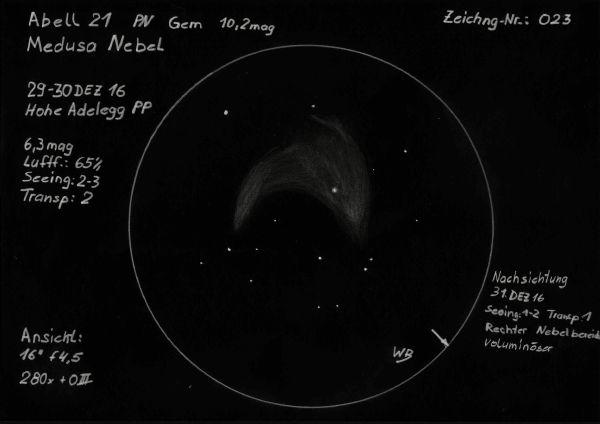 Abell 21 PN Gem 10,2mag
Medusa Nebel
Zeichng-Nr.: 023
29-30 DEZ 16
Hohe Adelegg PP
6,3mag
Luftf.: 65%
Seeing: 2-3
Transp: 2
Nachsichtung
31. DEZ 16
Seeing: 1-2 Transp: 1
Rechter Nebelbereich
voluminöser
Ansicht:
16" f4,5
280x + OIII
WB